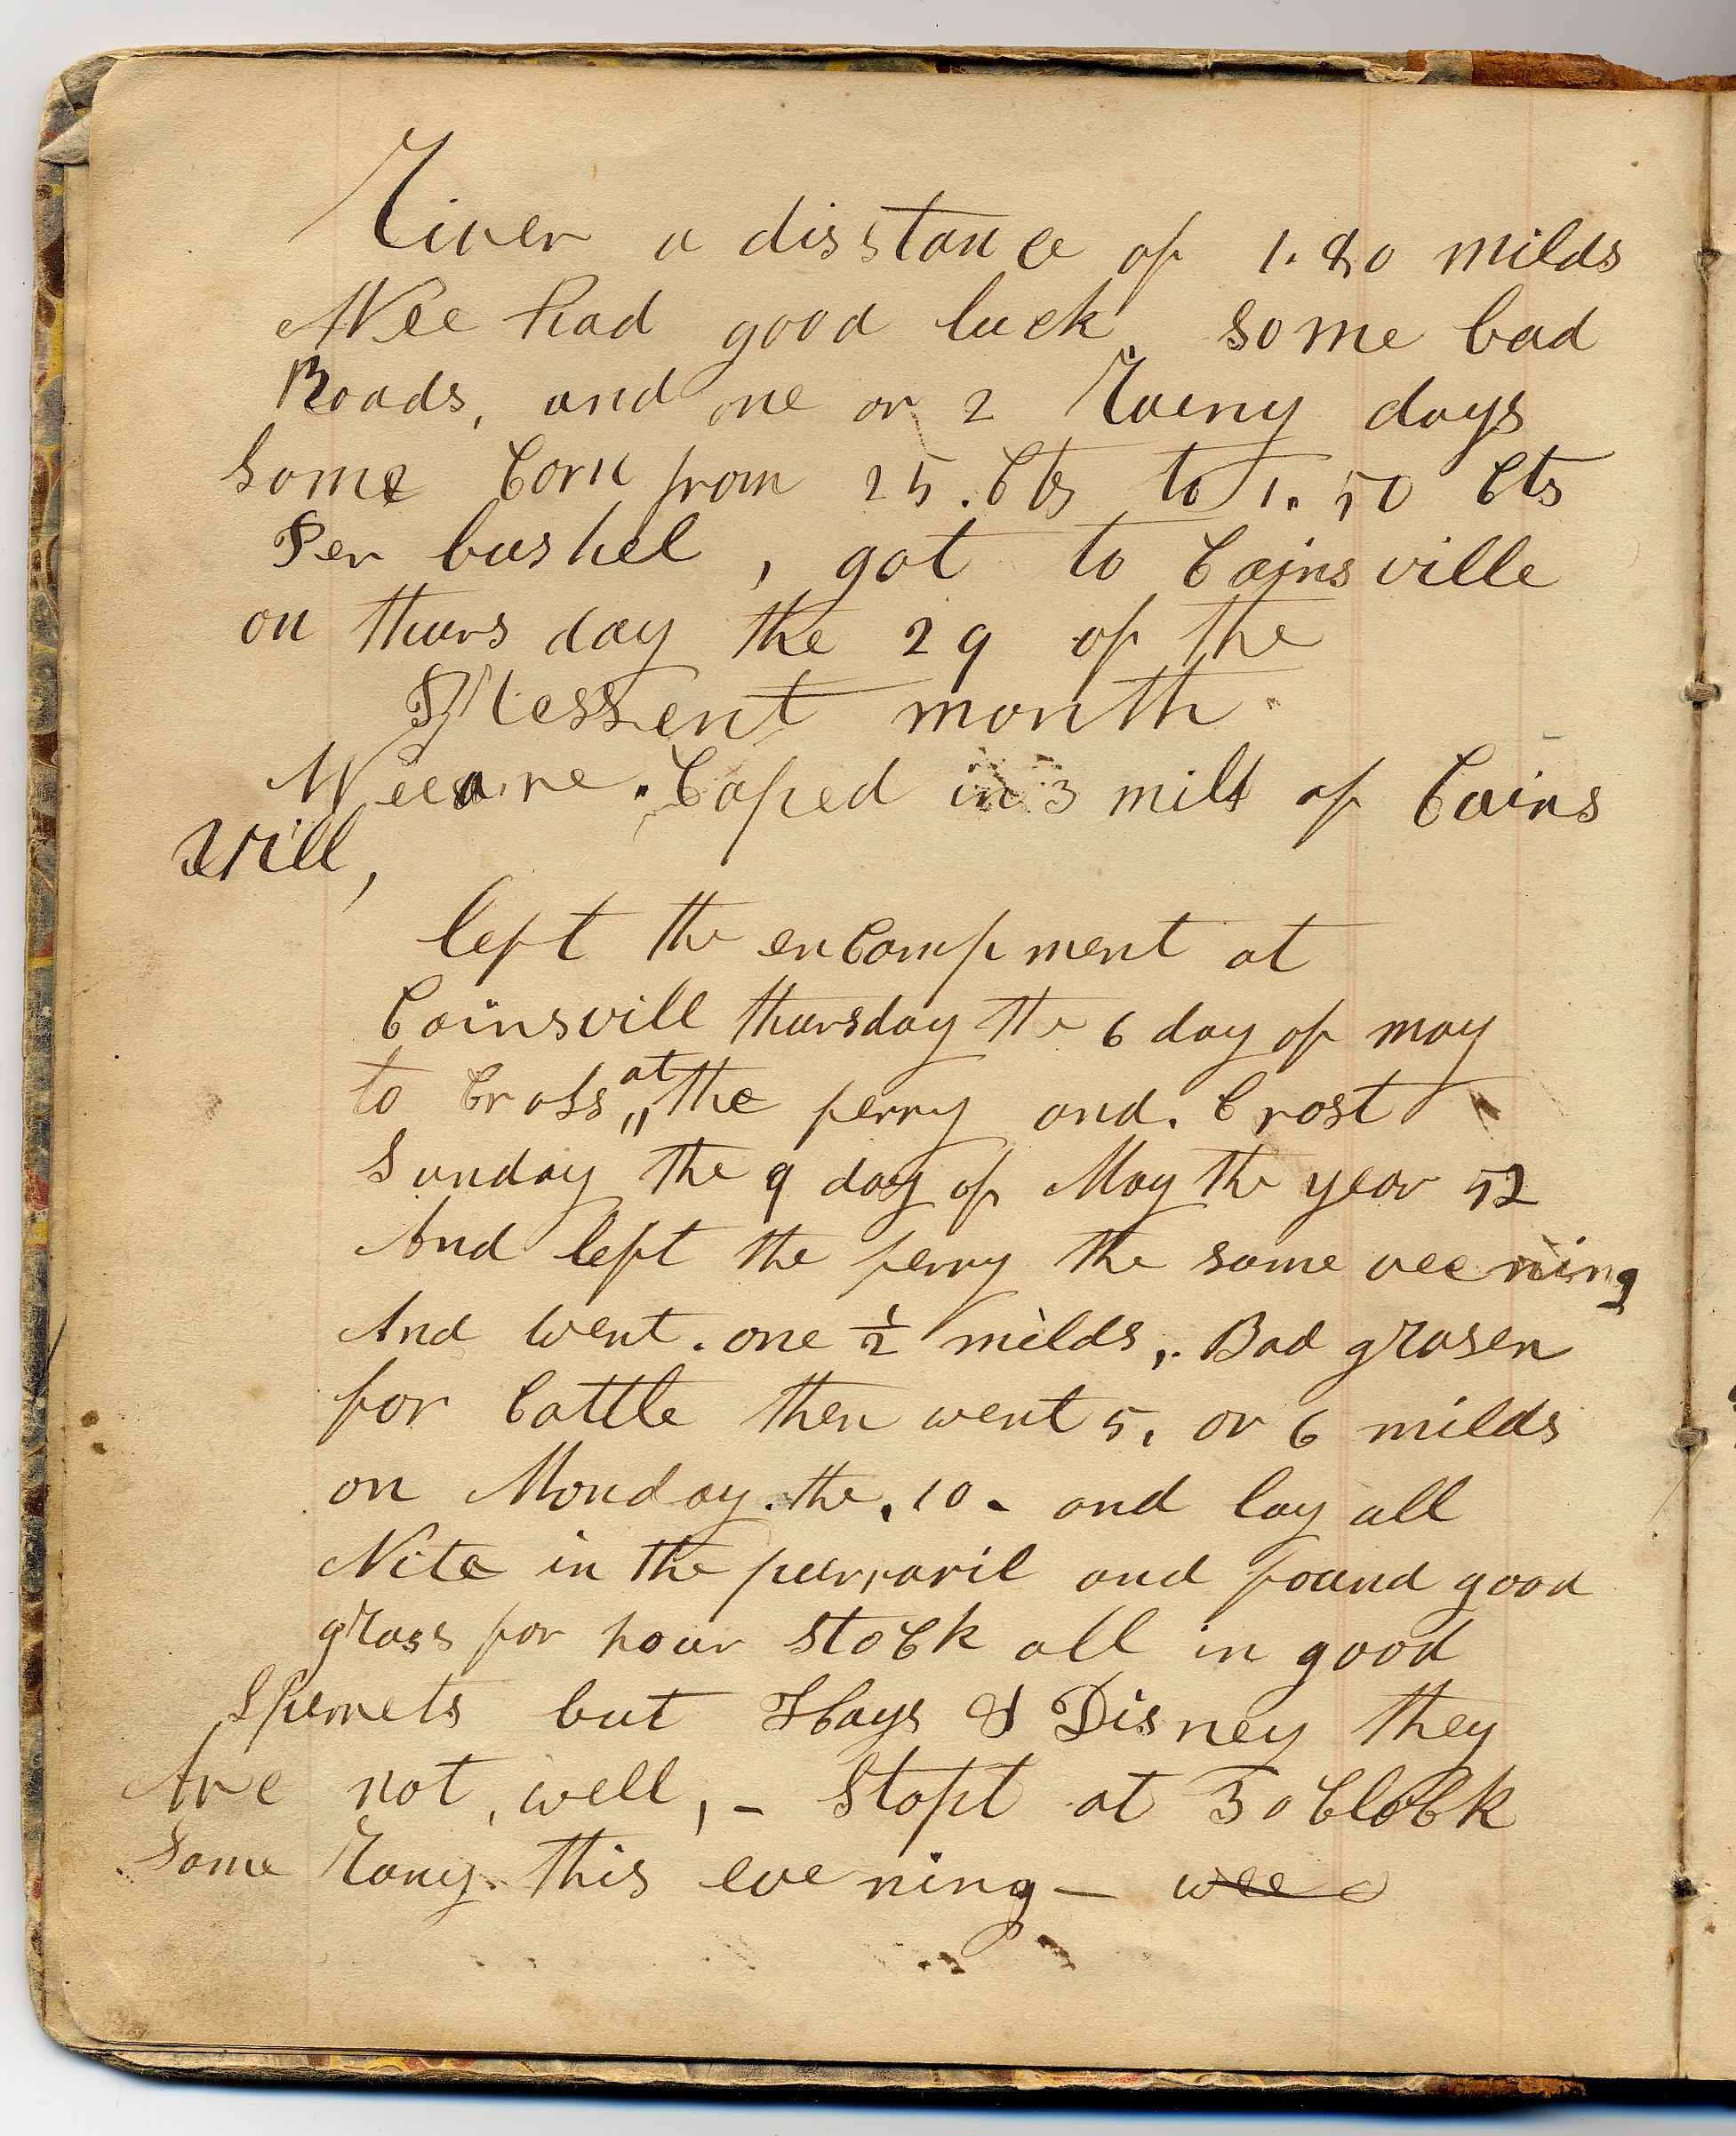 River a disstance of 1.80 milds
Wee had good luck some bad
Roads, and one or 2 Raeny days
some Corn from 25. Cts to 1.50 Cts
Per bushel, got to Cainsville
on thurs day the 29 of the
Pressent month
Wee are. Caped in 3 mild of Cains
vill,
left the enCampment at
Cainsvill thursday the 6 day of may
to Cross at the ferry and. Crost
Sunday the 9 day of May the year 52
And left the ferry the same veening
And went. one ½ milds,. Bad grasen
for Cattle then went 5, or 6 milds
on Monday. the. 10 - and lay all
Nite in the perraril and found good
grass for hour stoCk all in good
Sperrets but Hays & Disney they
Are not, well, - Stopt at 3 oCloCk
Some Rany. this evening — wee